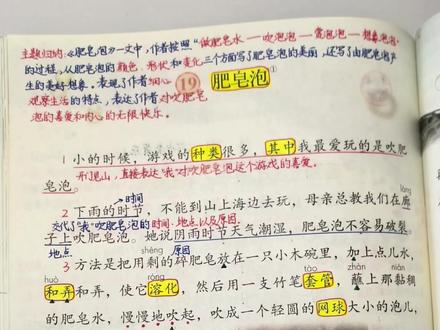 主题归纳:《肥皂泡》一文中,作者按照“做肥皂水——吹泡泡——赏泡泡——想象泡泡”
的过程,从肥皂泡的颜色、形状和变化三个方面写了肥皂泡的美丽,还写了由肥皂泡产
生的美好想象。表现了作者细心
观察生活的特点,表达了作者对吹肥皂
泡的喜爱和内心的无限快乐。
19 肥皂泡①
1 小的时候,游戏的种类很多,其中我最爱玩的是吹肥
皂泡。
开门见山,直接表达“我”对吹肥皂泡这个游戏的喜爱。
时间
láng
2 下雨的时节,不能到山上海边去玩,母亲总教我们在廊
交代了“我”吹肥皂泡的时间、地点以及原因
子上吹肥皂泡。她说阴雨时节天气潮湿,肥皂泡不容易破裂。
地点 原因
shèng
3 方法是把用剩的碎肥皂放在一只小木碗里,加上点儿水,
huò róng tào zhàn nián
和弄和弄,使它溶化,然后用一支竹笔套管,蘸上那黏稠
的肥皂水,慢慢地吹起,吹成一个轻圆的网球大小的泡儿,